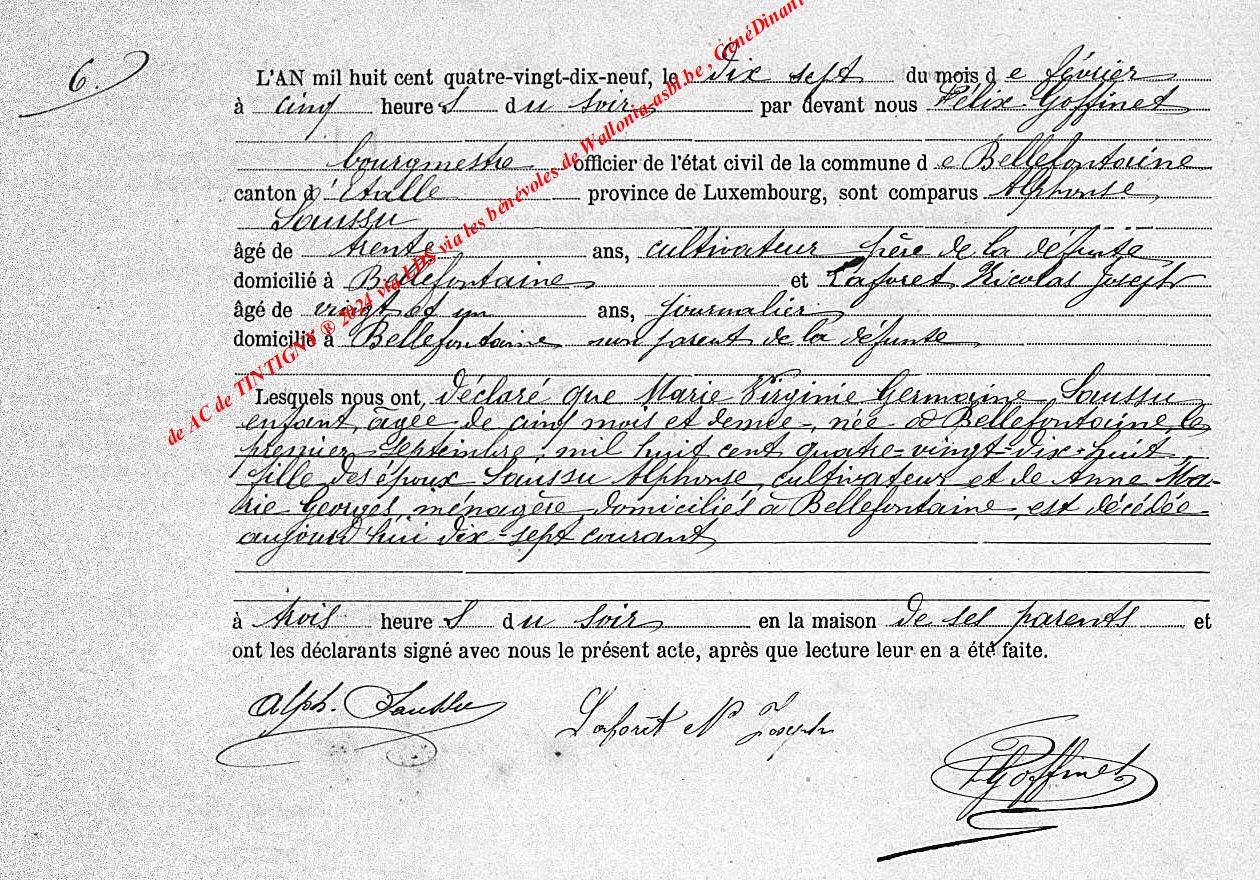 6.
L'AN mil huit cent quatre-vingt-dix-neuf, le dix sept du mois d e février
à cinq heure s du soir par devant nous Félix Goffinet
bourgmestre officier de l'état civil de la commune d e Bellefontaine
canton d'Etalle province de Luxembourg, sont comparus Alphonse
Saussu
âgé de trente ans, cultivateur père de la défunte
domicilié à Bellefontaine et Laforet Nicolas Joseph
âgé de vingt et un ans, journalier
domicilié à Bellefontaine non parent de la défunte
Lesquels nous ont, déclaré que Marie Virginie Germaine Saussu
enfant, âgée de cinq mois et demie, née à Bellefontaine, le
premier Septembre mil huit cent quatre-vingt-dix-huit,
fille des époux Saussu Alphonse, cultivateur et de Anne Ma-
rie Georges, ménagère domiciliés à Bellefontaine, est décédée
aujourd'hui dix-sept courant
à trois heure s du soir en la maison de ses parents et
ont les déclarants signé avec nous le présent acte, après que lecture leur en a été faite.
Alph. Saussu
Laforêt N Joseph
Goffinet
de AC de TINTIGNY ® 2024 via LDS via les bénévoles de Wallonia-asbl.be , GénéDinant